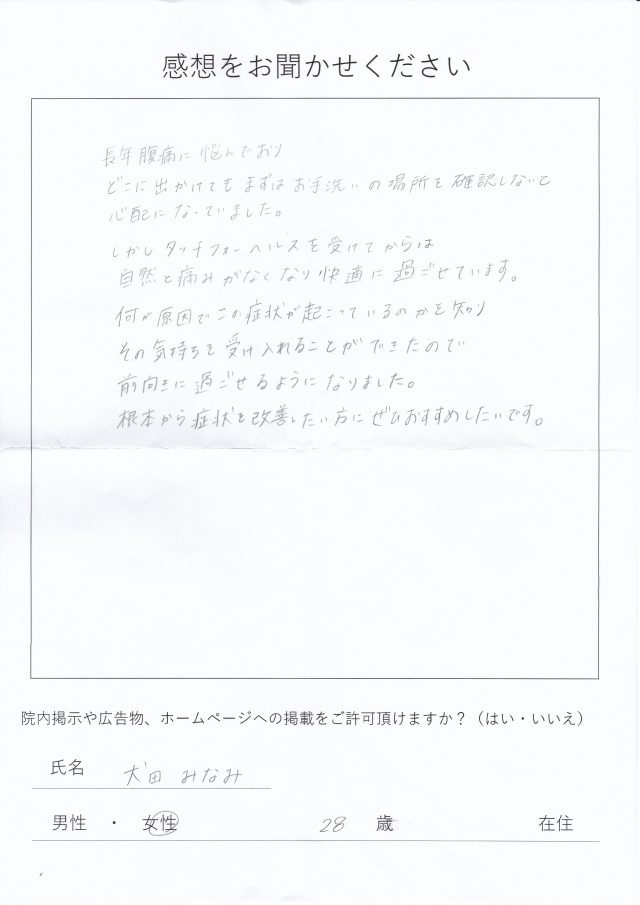 感想をお聞かせください
長年腹痛に悩んでおり
どこに出かけてもまずはお手洗いの場所を確認しないと
心配になっていました。
しかしタッチフォーヘルスを受けてからは
自然と痛みがなくなり快適に過ごせています。
何が原因でこの症状が起こっているのかを知り
その気持ちを受け入れることができたので
前向きに過ごせるようになりました。
根本から症状を改善したい方にぜひおすすめしたいです。
院内掲示や広告物、ホームページへの掲載をご許可頂けますか？（はい・いいえ）
氏名 犬田 みなみ
男性 ・ 女性 28 歳 在住